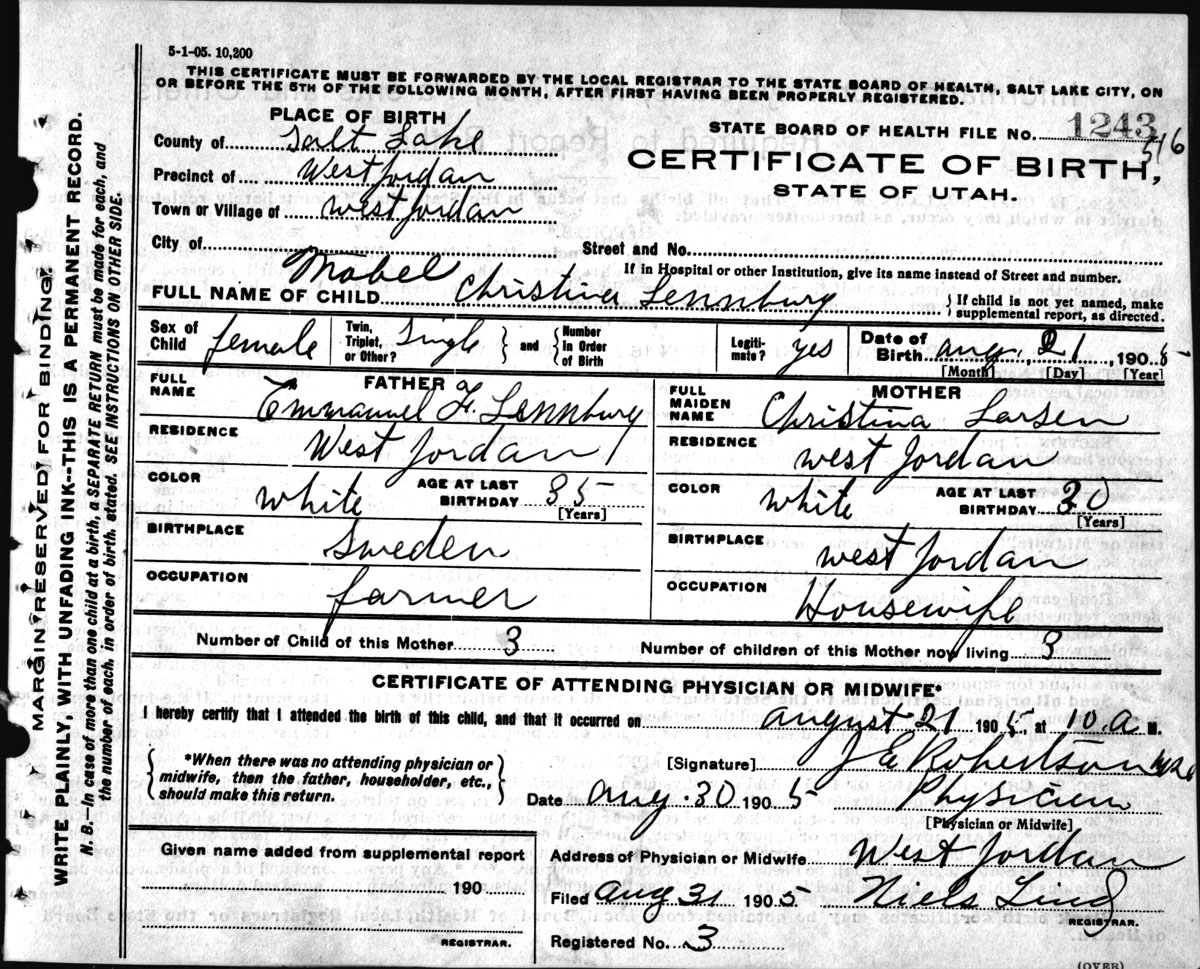 5-1-05. 10,200
THIS CERTIFICATE MUST BE FORWARDED BY THE LOCAL REGISTRAR TO THE STATE BOARD OF HEALTH, SALT LAKE CITY, ON
OR BEFORE THE 5TH OF THE FOLLOWING MONTH, AFTER FIRST HAVING BEEN PROPERLY REGISTERED.
PLACE OF BIRTH
STATE BOARD OF HEALTH FILE NO. 1243
516
County of Salt Lake
CERTIFICATE OF BIRTH,
Precinct of West Jordan
STATE OF UTAH.
Town or Village of West Jordan
City of
Street and No.
If in Hospital or other Institution, give its name instead of Street and number.
FULL NAME OF CHILD Mabel Christina Lennburg
{ If child is not yet named, make
supplemental report, as directed.
Sex of Child female
Twin, Triplet, or Other? Single } and { Number In Order of Birth
Legitimate? yes
Date of Birth Aug. 21, 1905
[Month] [Day] [Year]
FATHER
FULL NAME Emmanuel F. Lennburg
RESIDENCE West Jordan
COLOR white AGE AT LAST BIRTHDAY 35
[Years]
BIRTHPLACE Sweden
OCCUPATION farmer
MOTHER
FULL MAIDEN NAME Christina Larsen
RESIDENCE West Jordan
COLOR white AGE AT LAST BIRTHDAY 30
[Years]
BIRTHPLACE West Jordan
OCCUPATION Housewife
Number of Child of this Mother 3 Number of children of this Mother now living 3
CERTIFICATE OF ATTENDING PHYSICIAN OR MIDWIFE*
I hereby certify that I attended the birth of this child, and that it occurred on August 21 1905, at 10 A M.
*When there was no attending physician or
midwife, then the father, householder, etc.,
should make this return.
[Signature] J E Robertson
Date Aug. 30 1905 Physicien
[Physician or Midwife]
Given name added from supplemental report
190
REGISTRAR.
Address of Physician or Midwife West Jordan
Filed Aug 31 1905 Niels Lind
REGISTRAR.
Registered No. 3
(OVER)
MARGIN RESERVED FOR BINDING.
WRITE PLAINLY, WITH UNFADING INK--THIS IS A PERMANENT RECORD.
N. B.—In case of more than one child at a birth, a SEPARATE RETURN must be made for each, and
the number of each, in order of birth, stated. SEE INSTRUCTIONS ON OTHER SIDE.